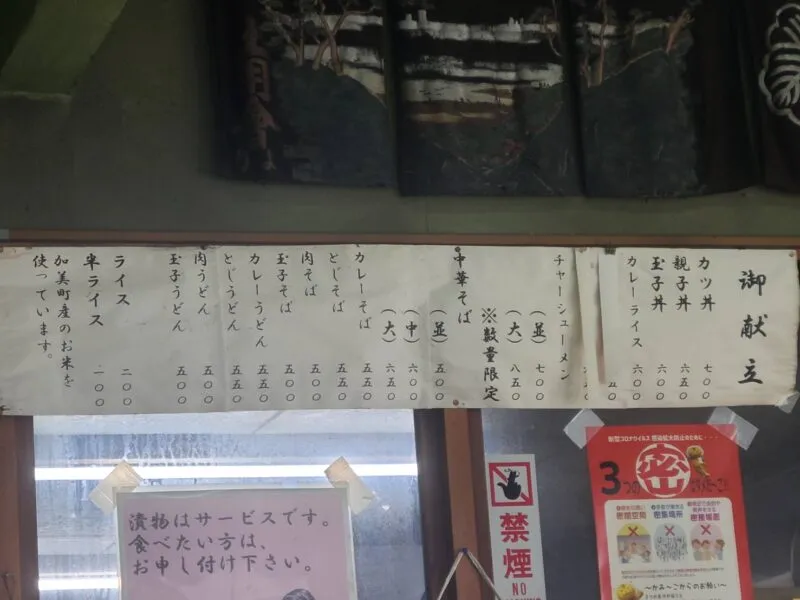 御献立
カツ丼 七〇〇
親子丼 六五〇
玉子丼 六〇〇
カレーライス 六〇〇
チャーシューメン
(並) 七〇〇
(大) 八五〇
※数量限定
中華そば
(並) 五〇〇
(中) 六〇〇
(大) 六五〇
カレーそば 五五〇
とじそば 五五〇
肉そば 五〇〇
玉子そば 五〇〇
カレーうどん 五五〇
とじうどん 五五〇
肉うどん 五〇〇
玉子うどん 五〇〇
ライス 二〇〇
半ライス 一〇〇
加美町産のお米を
使っています。
漬物はサービスです。
食べたい方は、
お申し付け下さい。
禁煙
NO
新型コロナウイルス 感染拡大防止のために・・・
3つの
密閉空間
密集場所
密接場面
～かみ～ごからのお願い～